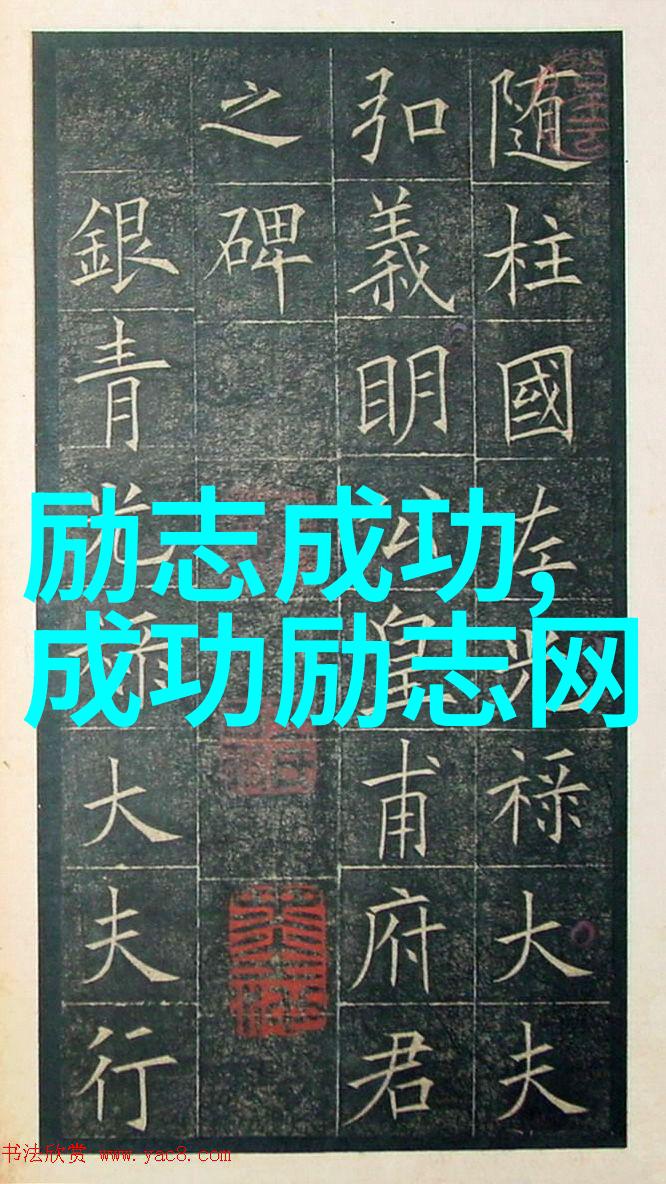 随柱國左光禄大夫
弘義明公皇甫府君
之碑
銀青光禄大夫行
励志成功,
成功励志网
书法欣赏 www.yac8.com